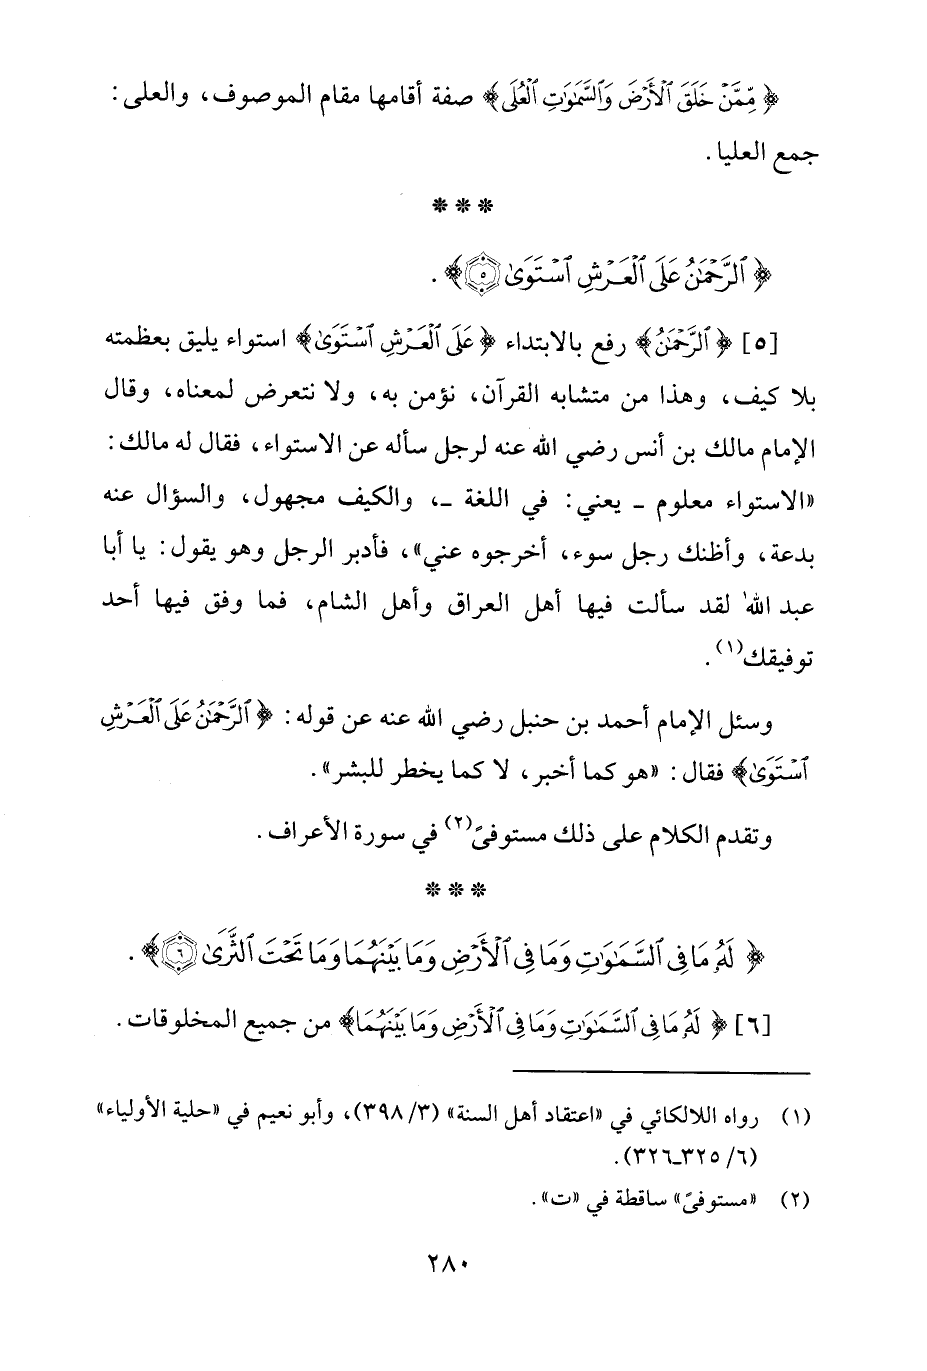 ﴿ مِّمَّنْ خَلَقَ ٱلْأَرْضَ وَٱلسَّمَٰوَٰتِ ٱلْعُلَى﴾ صفة أقامها مقام الموصوف، والعلى:
جمع العليا.
* * *
﴿ ٱلرَّحْمَٰنُ عَلَى ٱلْعَرْشِ ٱسْتَوَىٰ ٥﴾.
[٥] ﴿ ٱلرَّحْمَٰنُ﴾ رفع بالابتداء ﴿ عَلَى ٱلْعَرْشِ ٱسْتَوَىٰ﴾ استواء يليق بعظمته
بلا كيف، وهذا من متشابه القرآن، نؤمن به، ولا نتعرض لمعناه، وقال
الإمام مالك بن أنس رضي الله عنه لرجل سأله عن الاستواء، فقال له مالك:
«الاستواء معلوم - يعني: في اللغة -، والكيف مجهول، والسؤال عنه
بدعة، وأظنك رجل سوء، أخرجوه عني»، فأدبر الرجل وهو يقول: يا أبا
عبد الله! لقد سألت فيها أهل العراق وأهل الشام، فما وفق فيها أحد
توفيقك(١).
وسئل الإمام أحمد بن حنبل رضي الله عنه عن قوله: ﴿ ٱلرَّحْمَٰنُ عَلَى ٱلْعَرْشِ
ٱسْتَوَىٰ﴾ فقال: «هو كما أخبر، لا كما يخطر للبشر».
وتقدم الكلام على ذلك مستوفىً(٢) في سورة الأعراف.
* * *
﴿ لَهُۥ مَا فِى ٱلسَّمَٰوَٰتِ وَمَا فِى ٱلْأَرْضِ وَمَا بَيْنَهُمَا وَمَا تَحْتَ ٱلثَّرَىٰ ٦﴾.
[٦] ﴿ لَهُۥ مَا فِى ٱلسَّمَٰوَٰتِ وَمَا فِى ٱلْأَرْضِ وَمَا بَيْنَهُمَا﴾ من جميع المخلوقات.
(١) رواه اللالكائي في «اعتقاد أهل السنة» (٣/ ٣٩٨)، وأبو نعيم في «حلية الأولياء»
(٦/ ٣٢٥-٣٢٦).
(٢) «مستوفىً» ساقطة في «ت».
٢٨٠